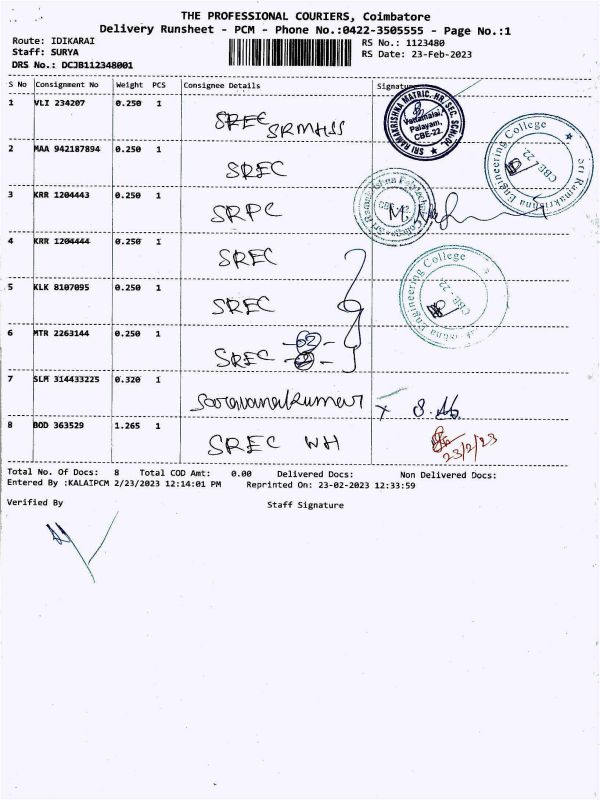 THE PROFESSIONAL COURIERS, Coimbatore
Delivery Runsheet - PCM - Phone No.:0422-3505555 - Page No.:1
Route: IDIKARAI RS No.: 1123480
Staff: SURYA RS Date: 23-Feb-2023
DRS No.: DCJB112348001
S No Consignment No Weight PCS Consignee Details Signature
1 VLI 234207 0.250 1 SREC SRMHSS
2 MAA 942187894 0.250 1 SREC
3 KRR 1204443 0.250 1 SRPC
4 KRR 1204444 0.250 1 SREC
5 KLK 8107095 0.250 1 SREC
6 MTR 2263144 0.250 1 SREC
7 SLM 314433225 0.320 1 Saravanakumar
8 BOD 363529 1.265 1 SREC WH
23/2/23
SRI RAMAKRISHNA MATRIC. HR. SEC. SCHOOL
Vattamalai
Palayam,
CBE-22.
Sri Ramakrishna Engineering College
CBE - 22
Sri Ramakrishna Polytechnic College
CBE - 22
Engineering College
CBE - 22
Total No. Of Docs: 8 Total COD Amt: 0.00 Delivered Docs: Non Delivered Docs:
Entered By :KALAIPCM 2/23/2023 12:14:01 PM Reprinted On: 23-02-2023 12:33:59
Verified By Staff Signature